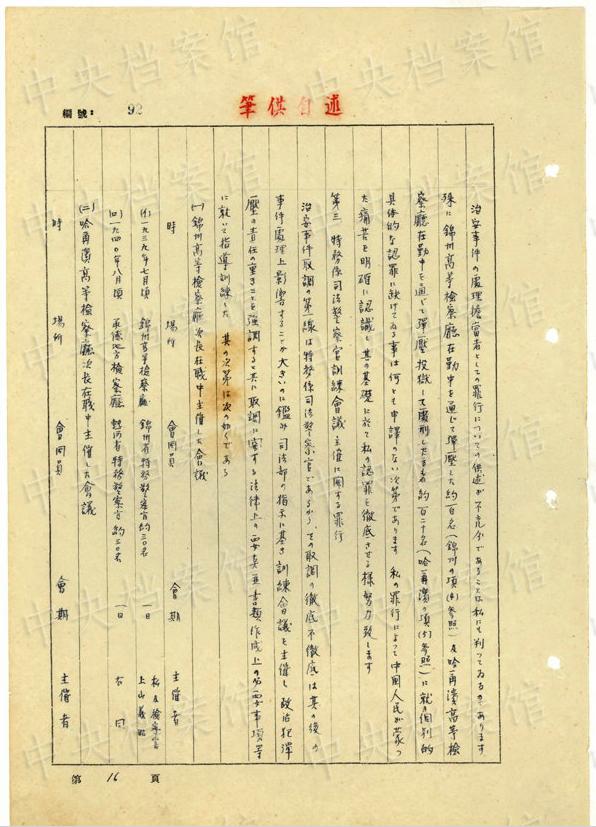 筆供自述
編號: 92
治安事件の処理擔當者としての罪行についての供述が不充分であることは私にも判ってゐるのであります
殊に錦州高等檢察廳在勤中を通じて彈壓した約一百名(錦州の項(4)参照)及哈爾濱高等檢
察廳在勤中を通じて彈壓投獄して處刑した者約一百二十名(哈爾濱の項(5)参照)に就き個別的
具体的な認罪に缺けてゐる事は何とも申譯のない次第であります 私の罪行によって中國人民が蒙っ
た痛苦を明確に認識し其の基礎に於て私の認罪を徹底させる様努力致します
第三 特務係司法警察官訓練會議主催に関する罪行
治安事件取調の第一線は特務係司法警察官であるから、その取調の徹底不徹底は其の後の
事件處理上影響することが大きいのに鑑み司法部の指示に基き訓練會議を主催し政治犯彈
壓の責任の重きことを強調すると共に取調に関する法律上の要点並書類作成上の必要事項等
に就いて指導訓練した 其の次第は次の如くである
(一) 錦州高等檢察廳次長在職中主催した會議
時 場所 會同員 會期 主催者
(イ) 一九三九年七月頃 錦州高等檢察廳 錦州省特務警察官約三〇名 一日 私及檢察官上山義昭
(ロ) 一九四〇年八月頃 承徳地方檢察廳 熱河省特務警察官約三〇名 一日 右同
(二) 哈爾濱高等檢察廳次長在職中主催した會議
時 場所 會同員 會期 主催者
第 16 頁
中央档案馆